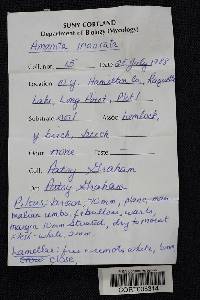 SUNY CORTLAND
Department of Biology (Mycology)
Amanita inaurata
Coll. no. 15 Date 25 July 1988
Location N.Y. Hamilton Co. Raquette
Lake, Long Point, Plot 1
Substrate soil Assoc. hemlock,
y. birch, beech
Odor none
Coll. Patsy Graham
Det. Patsy Graham
Pileus: brown, 70mm, plane, mam-
umbo, warts,
margin 10mm striated, dry to moist
white, 3mm
Lamellae: free + remote, white, 6mm
close,
CORT